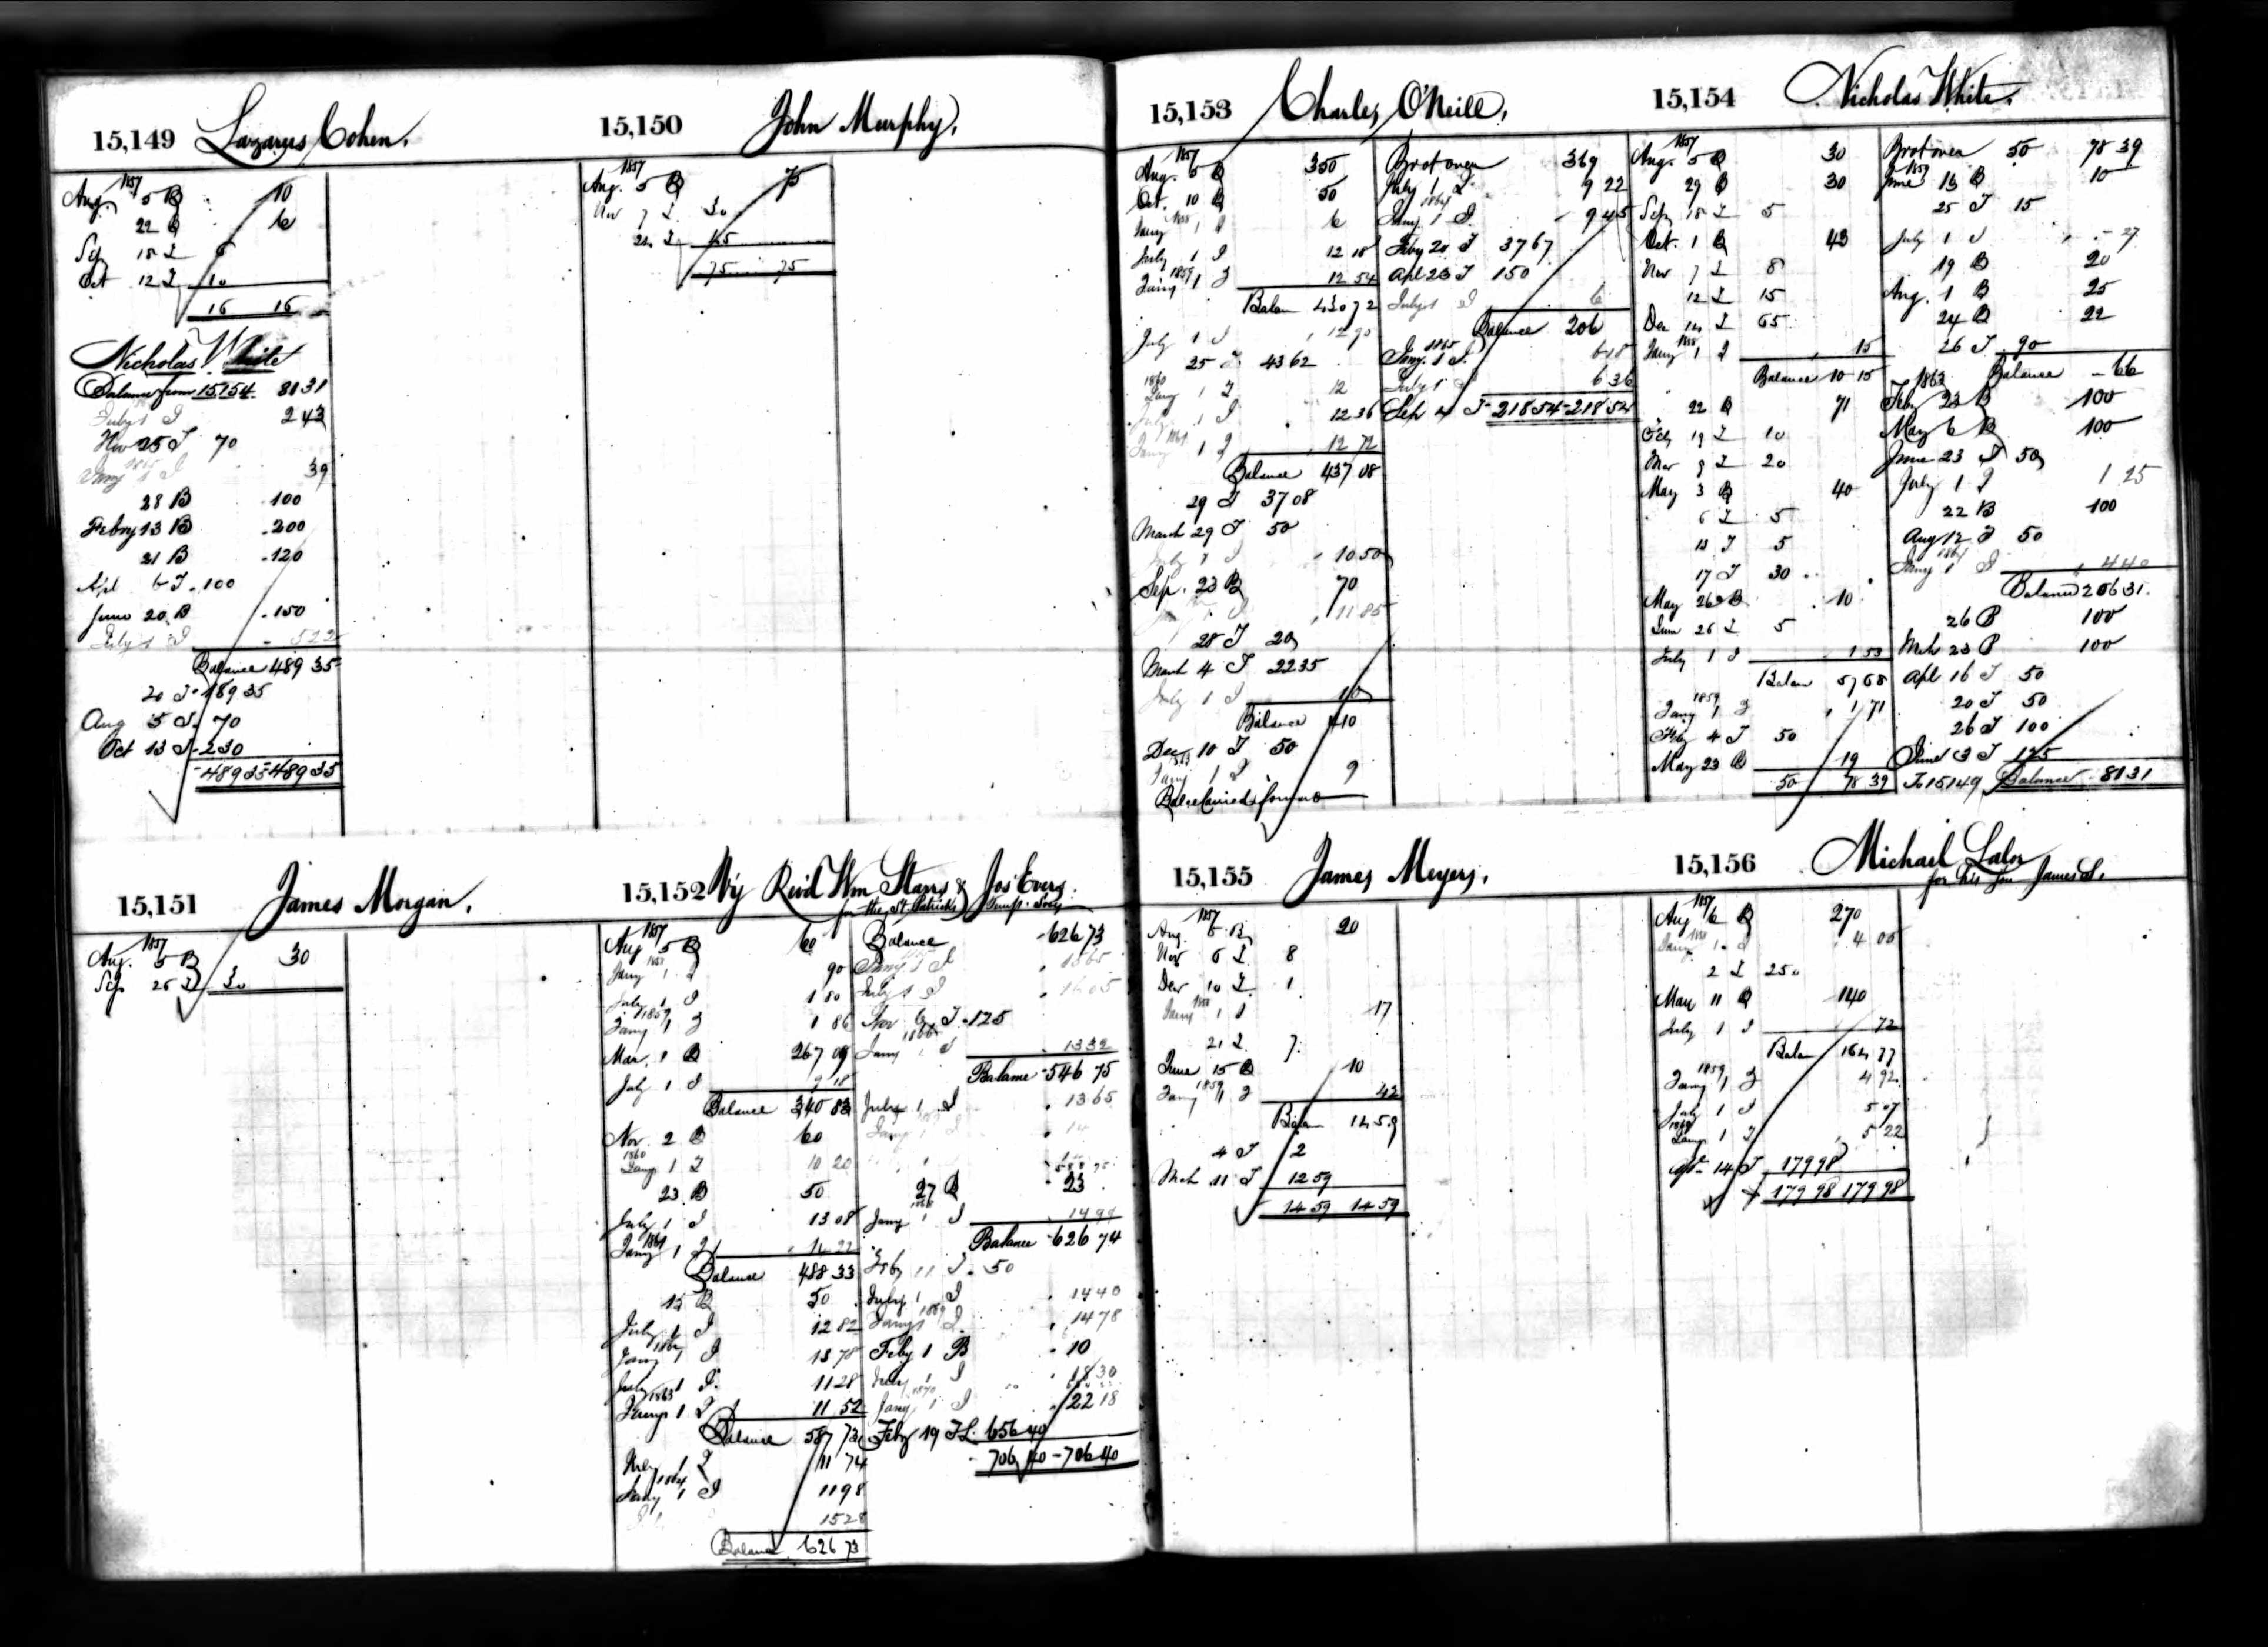 15,149 Lazarus Cohen.
1857
Aug. 5 B 10
22 B 6
Sep 15 I 6
Oct 12 I 10
16 16
Nicholas White
Balance from 15154 8131
July 1 I 243
Nov 25 I 70
Jany 1 I 39
28 B 100
Febry 13 B 200
21 B 120
Apl 6 I 100
June 20 B 150
July 1 I 522
Balance 489 35
20 I 189 35
Aug 5 I 70
Oct 13 I 230
489 35 489 35
15,150 John Murphy,
1857
Aug. 5 B 75
Nov 7 I 30
24 I 45
75 75
15,151 James Morgan,
1857
Aug. 5 B 30
Sep 26 I 30
15,152 Vy Revd Wm Starrs & Jos Evers.
for the St. Patricks Temp. Socy
1857
Aug 5 B 60
Jany 1 I 90
July 1 I 1 80
1859
Jany 1 I 1 86
Mar. 1 B 267 09
July 1 I 9 18
Balance 340 83
Nov. 2 B 60
1860
Jany 1 I 10 20
23 B 50
July 1 I 13 08
1861
Jany 1 I 14 22
Balance 488 33
15 B 50
July 1 I 12 82
1862
Jany 1 I 13 78
July 1 I 11 28
1863
Jany 1 I 11 52
Balance 587 73
July 1 I 11 74
1864
Jany 1 I 11 98
15 28
Balance 626 73
Balance 626 73
Jany 1 I 15 65
July 1 I 16 05
Nov 6 I 125
1866
Jany 1 I 13 32
Balance 546 75
July 1 I 13 65
Jany 1 I 14
27 B 23
Jany 1 I 14 99
Balance 626 74
Feby 11 I 50
July 1 I 14 40
1869
Jany 1 I 14 78
Feby 1 B 10
July 1 I 18 30
1870
Jany 1 I 22 18
Feby 19 I 656 40
706 40 706 40
15,153 Charles O'Neill,
1857
Aug. 5 B 350
Oct. 10 B 50
1858
Jany 1 I 6
July 1 I 12 18
1859
Jany 1 I 12 54
Balan 430 72
July 1 I 12 90
25 I 43 62
1860
Jany 1 I 12
July 1 I 12 36
1861
Jany 1 I 12 72
Balance 437 08
29 I 37 08
March 29 I 50
July 1 I 10 50
Sep. 23 B 70
11 85
28 I 20
March 4 I 22 35
July 1 I 10
Balance 410
Dec 10 I 50
1863
Jany 1 I 9
Balce Carried forward
Brot over 369
July 1 I 9 22
1864
Jany 1 I 9 45
Feby 20 I 37 67
Apl 23 I 150
July 1 I 6
Balance 206
1865
Jany. 1 I. 6 18
July 1 I 6 36
Sep 4 I 218 54 218 54
15,154 Nicholas White.
1857
Aug. 5 B 30
29 B 30
Sep 15 I 5
Oct. 1 B 43
Nov 7 I 8
12 I 15
Dec 14 I 65
1858
Jany 1 I 15
Balance 10 15
22 B 71
Feby 19 I 10
Mar 9 I 20
May 3 B 40
6 I 5
13 I 5
17 I 30
May 26 B 10
June 26 I 5
July 1 I 1 53
Balan 57 68
1859
Jany 1 I 1 71
Feby 4 I 50
May 23 B 19
50 78 39
Brot over 50 78 39
1859
June 13 B 10
25 I 15
July 1 I 27
19 B 20
Aug. 1 B 25
24 B 22
26 I 90
1863 Balance 66
Feby 23 B 100
May 6 B 100
June 23 I 50
July 1 I 1 25
22 B 100
Aug 12 I 50
1864
Jany 1 I 4 40
Balance 206 31
26 B 100
Mch 23 B 100
Apl 16 I 50
20 I 50
26 I 100
June 3 I 125
To 15149 Balance 81 31
15,155 James Meyers,
1857
Aug. 5 B 20
Nov 6 I 8
Dec 10 I 1
1858
Jany 1 I 17
21 I 7
June 15 B 10
1859
Jany 1 I 42
Balan 14 59
4 I 2
Mch 11 I 12 59
14 59 14 59
15,156 Michael Lalor
for his Son James S.
1857
Aug 6 B 270
1858
Jany 1 I 4 05
2 I 250
Mar 11 B 140
July 1 I 72
Balan 164 77
1859
Jany 1 I 4 92
July 1 I 5 07
1860
Jany 1 I 5 22
14 I 179 98
179 98 179 98